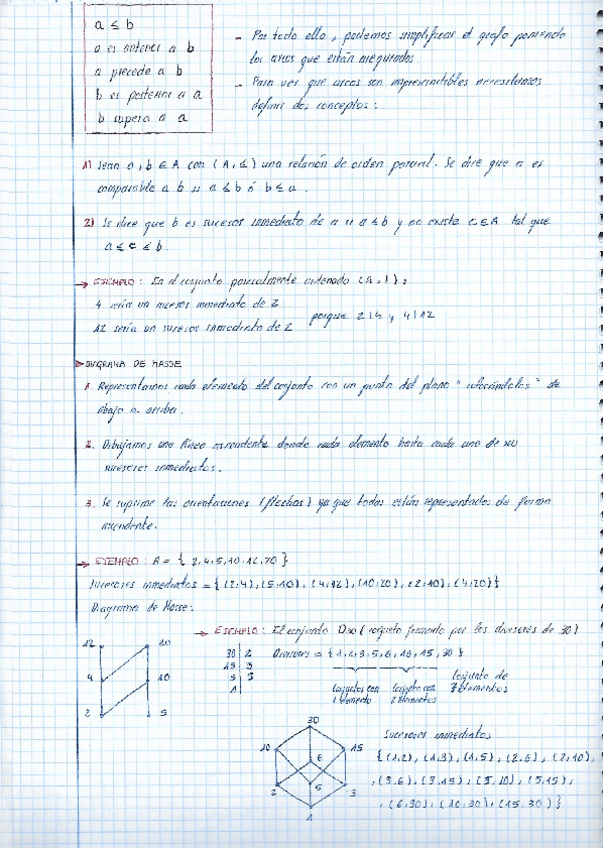 a ≤ b
a es anterior a b
a precede a b
b es posterior a a
b supera a a
- Por todo ello, podemos simplificar el grafo poniendo
los arcos que están asegurados.
- Para ver que arcos son imprescindibles necesitamos
definir dos conceptos:
1) Sean a, b ∈ A con (A, ≤) una relación de orden parcial. Se dice que a es
comparable a b si a ≤ b ó b ≤ a.
2) Se dice que b es sucesor inmediato de a si a ≤ b y no existe c ∈ A tal que
a ≤ c ≤ b.
→ EJEMPLO: En el conjunto parcialmente ordenado (A, |);
4 sería un sucesor inmediato de 2
12 sería un sucesor inmediato de 2
porque 2|4 y 4|12
→ DIAGRAMA DE HASSE
1. Representamos cada elemento del conjunto con un punto del plano " " de
abajo a arriba.
2. Dibujamos una línea ascendente donde cada elemento hasta cada uno de sus
sucesores inmediatos.
3. Se suprime las orientaciones (flechas) ya que todas están representadas de forma
ascendente.
→ EJEMPLO: A = { 2,4,5,10,12,20 }
Sucesores inmediatos = { (2,4), (5,10), (4,12), (10,20), (2,10), (4,20) }
Diagrama de Hasse:
12 20
4 10
2 5
→ EJEMPLO: El conjunto D30 (conjunto formado por los divisores de 30)
30 | 2
15 | 3
5 | 5
1 |
Divisores = { 1,2,3,5,6,10,15,30 }
conjuntos con
1 elemento
conjuntos con
2 elementos
conjunto de
3 elementos
30
10 6 15
2 5 3
1
Sucesores inmediatos
{ (1,2), (1,3), (1,5), (2,6), (2,10),
, (3,6), (3,15), (5,10), (5,15),
, (6,30), (10,30), (15,30) }